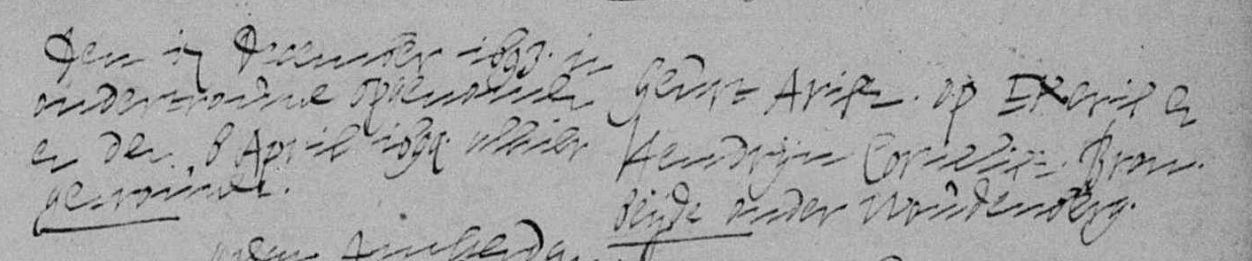 Den 17 December 1693. in
ondertrouwe opgenomen
en den 8 April 1694. alhier
getrouwt.
Arisz. op
Hendrijn Cornelisz. Brom.
beijde onder Woudenberg.